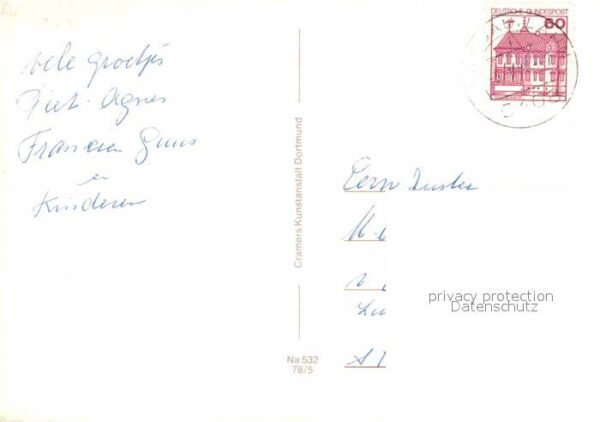 vele groetjes
Piet - Agnes
Francien Guus
en
Kinderen
Cramers Kunstanstalt Dortmund
Na 532
78/5
DEUTSCHE BUNDESPOST
60
Eerw Zuster
privacy protection
Datenschutz